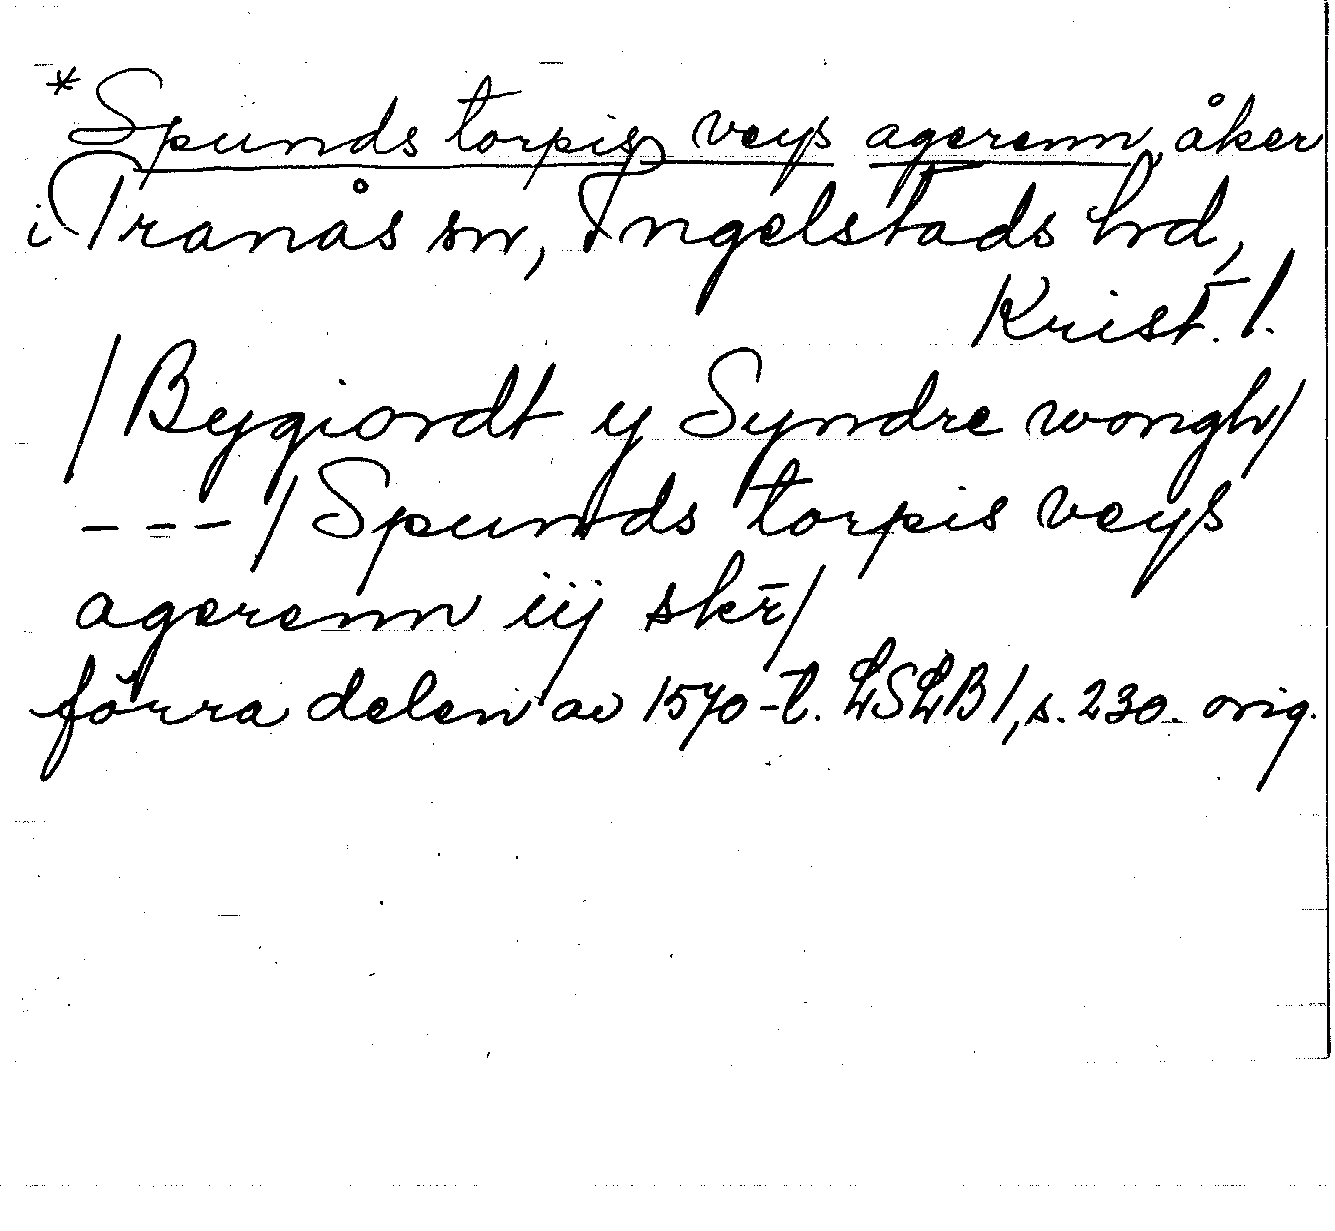 *Spunds torpis veys agerenn, åker
i Tranås sn, Ingelstads hrd,
Krist. l.
/Bygiordt y Syndre wongh/
---/Spunds torpis veys
agerenn iij skr̄/
förra delen av 1570-t. LSLB1, s. 230. orig.